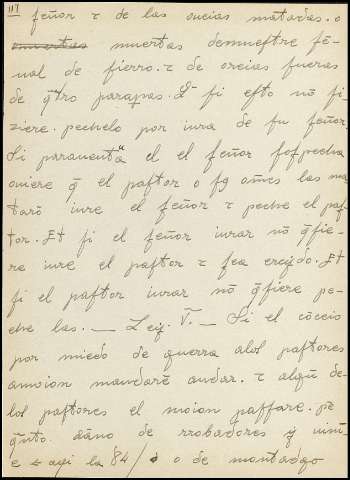 117
ſeñor τ de las oueias matadas. o
muertas muertas demueſtre ſē-
nal de fierro. τ de oreias fueras
de q̄tro parapas. Et ſi eſto nō fi
ziere. pechelo por iura de ſu ſeñor.
Si parauentā el el ſeñor ſoſpecha
ouiere q̄ el paſtor o ſ9 oms̄ las ma
tarō iure el ſeñor τ peche el paſ
tor. Et ſi el ſeñor iurar nō q̄ſie-
re iure el paſtor τ ſea creydo. Et
ſi el paſtor iurar nō q̄ſiere pe-
che las. — Ley. V. — Si el cōceio
por miedo de guerra alos paſtores
amoion mandarē andar. τ algū de-
los paſtores el moion paſſare. pē
q̄nto. dāno de rrobadores q̄ uini-
e aqi la 84/ o de montadgo